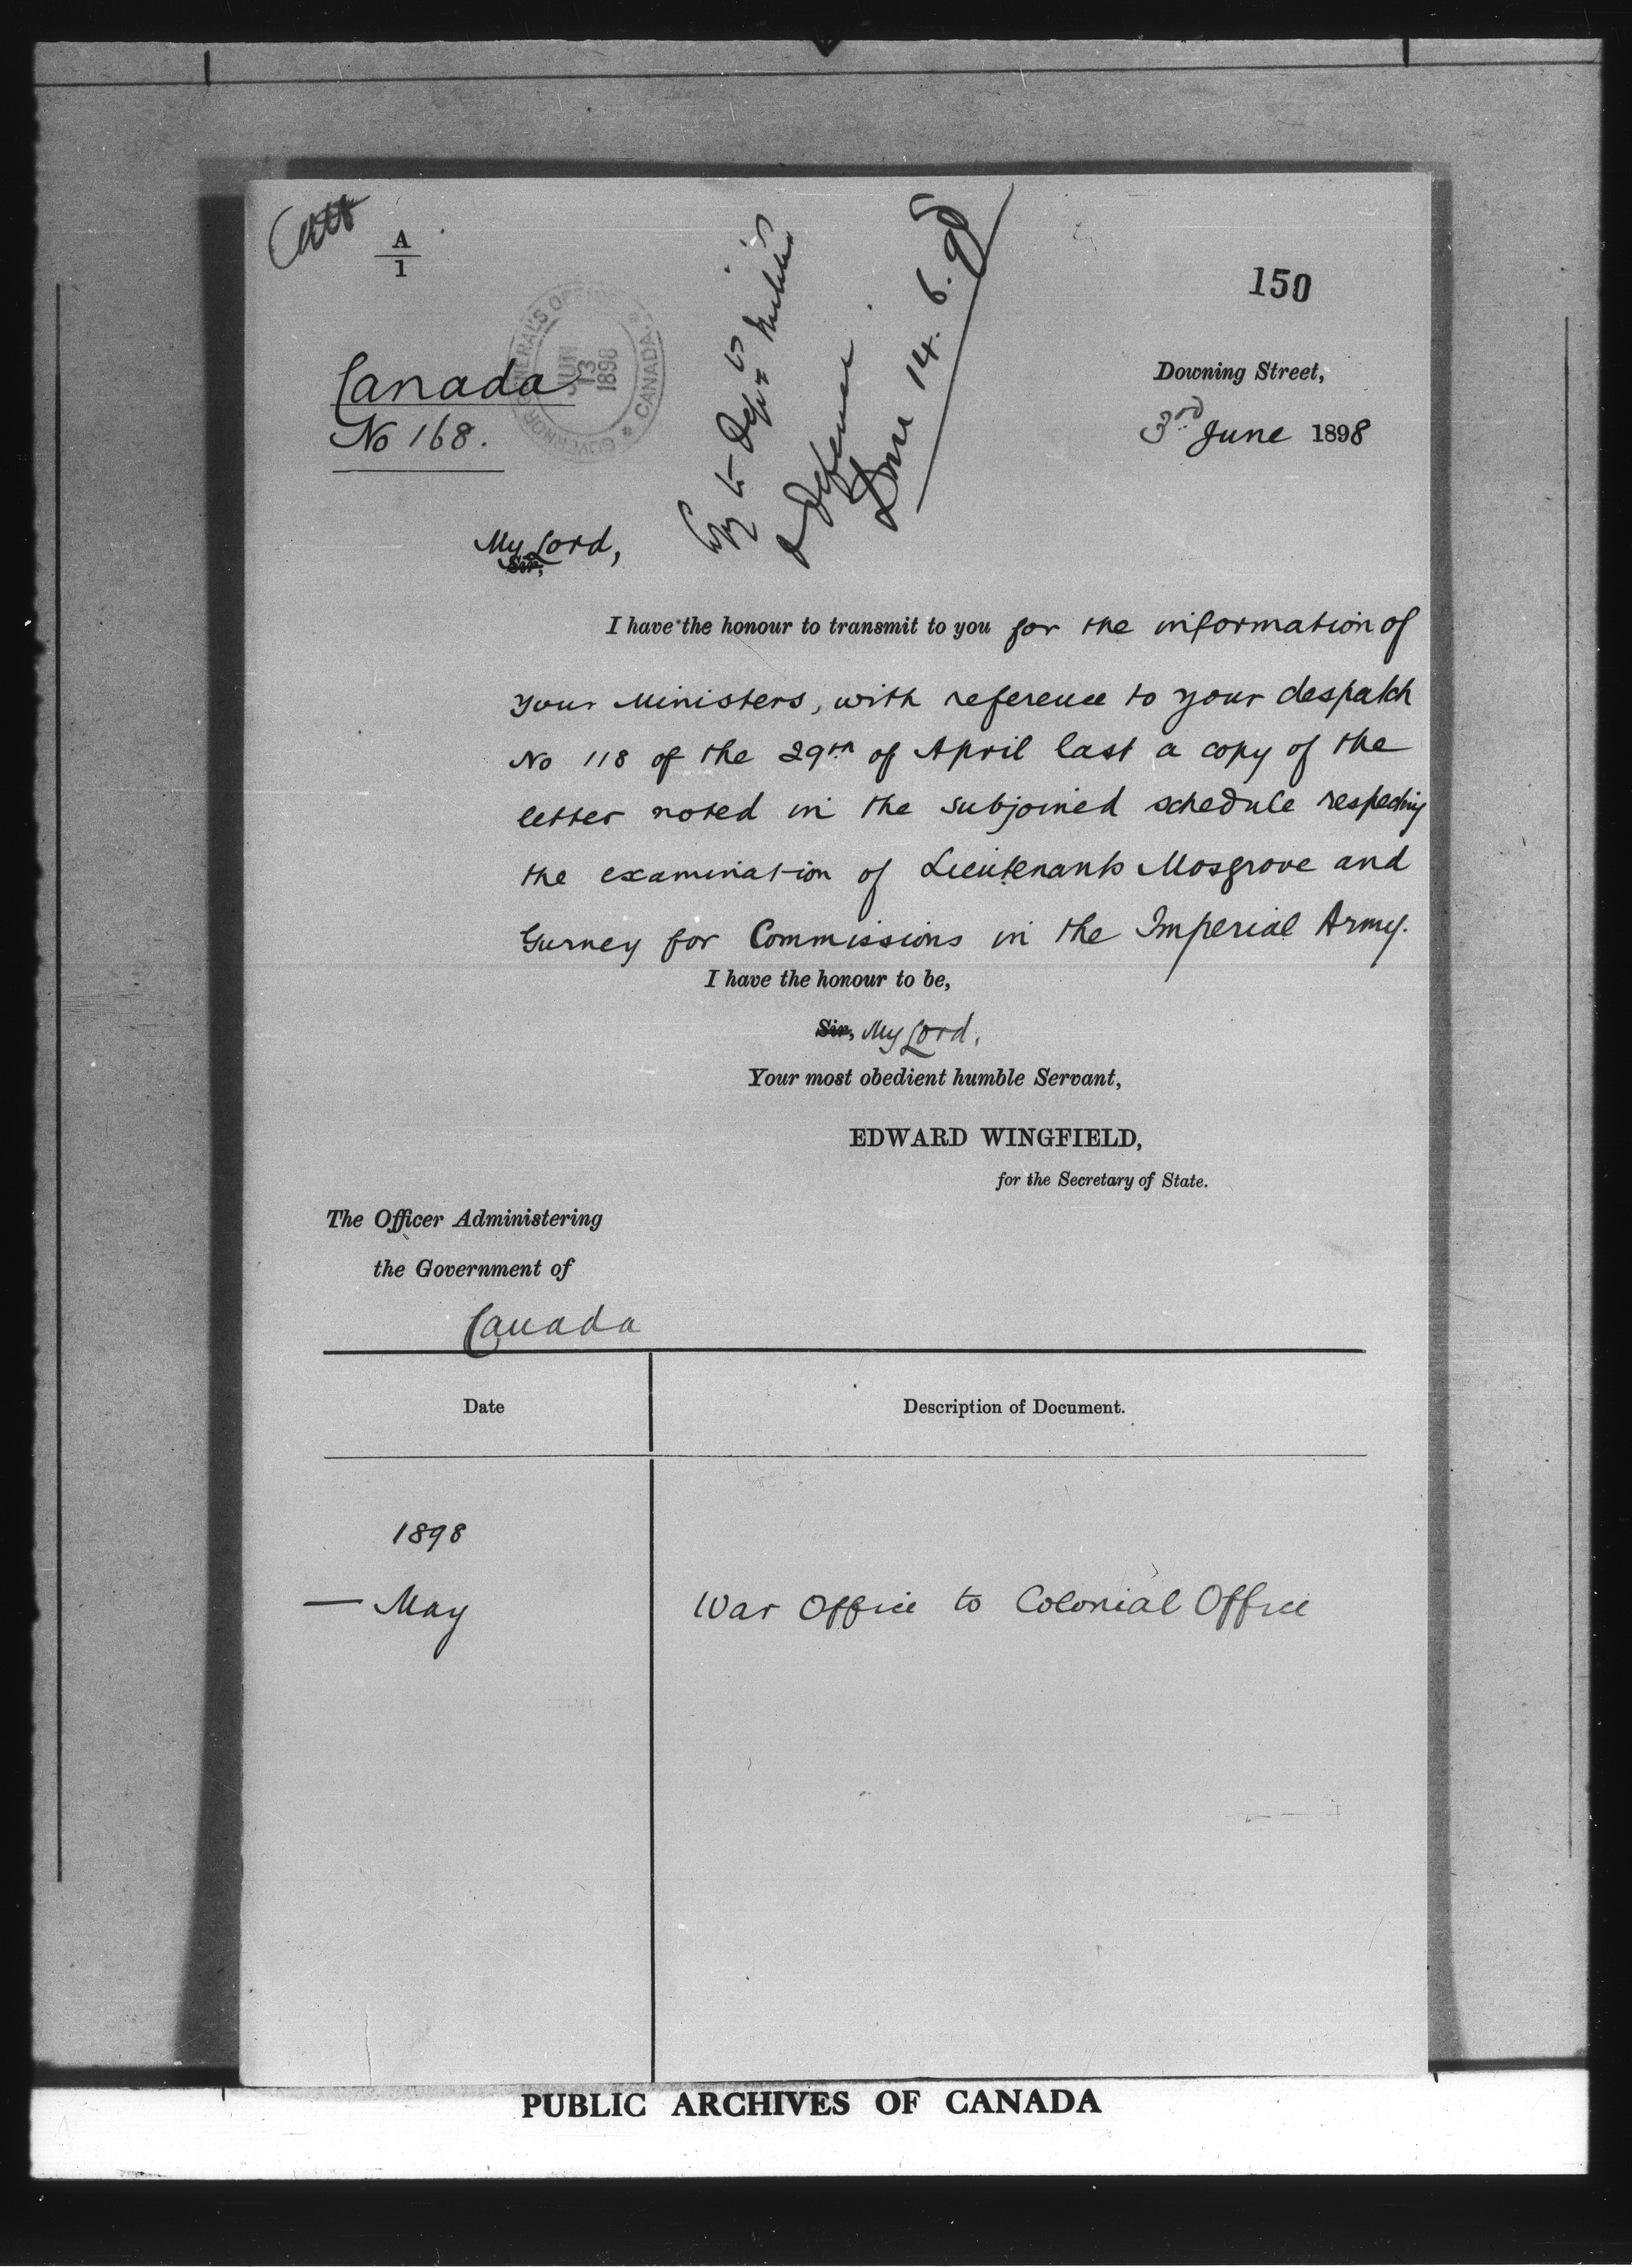 A
1
150
GOVERNOR GENERAL'S OF
JUN
13
1898
CANADA
Canada
No 168.
Copy to Dept of Militia
& Defence
Done 14. 6. 98
Downing Street,
3rd June 1898
My Lord,
Sir,
I have the honour to transmit to you for the information of
your Ministers, with reference to your despatch
No 118 of the 29th of April last a copy of the
letter noted in the subjoined schedule respecting
the examination of Lieutenants Mosgrove and
Gurney for Commissions in the Imperial Army.
I have the honour to be,
Sir, My Lord,
Your most obedient humble Servant,
EDWARD WINGFIELD,
for the Secretary of State.
The Officer Administering
the Government of
Canada
Date
Description of Document.
1898
— May
War Office to Colonial Office
PUBLIC ARCHIVES OF CANADA